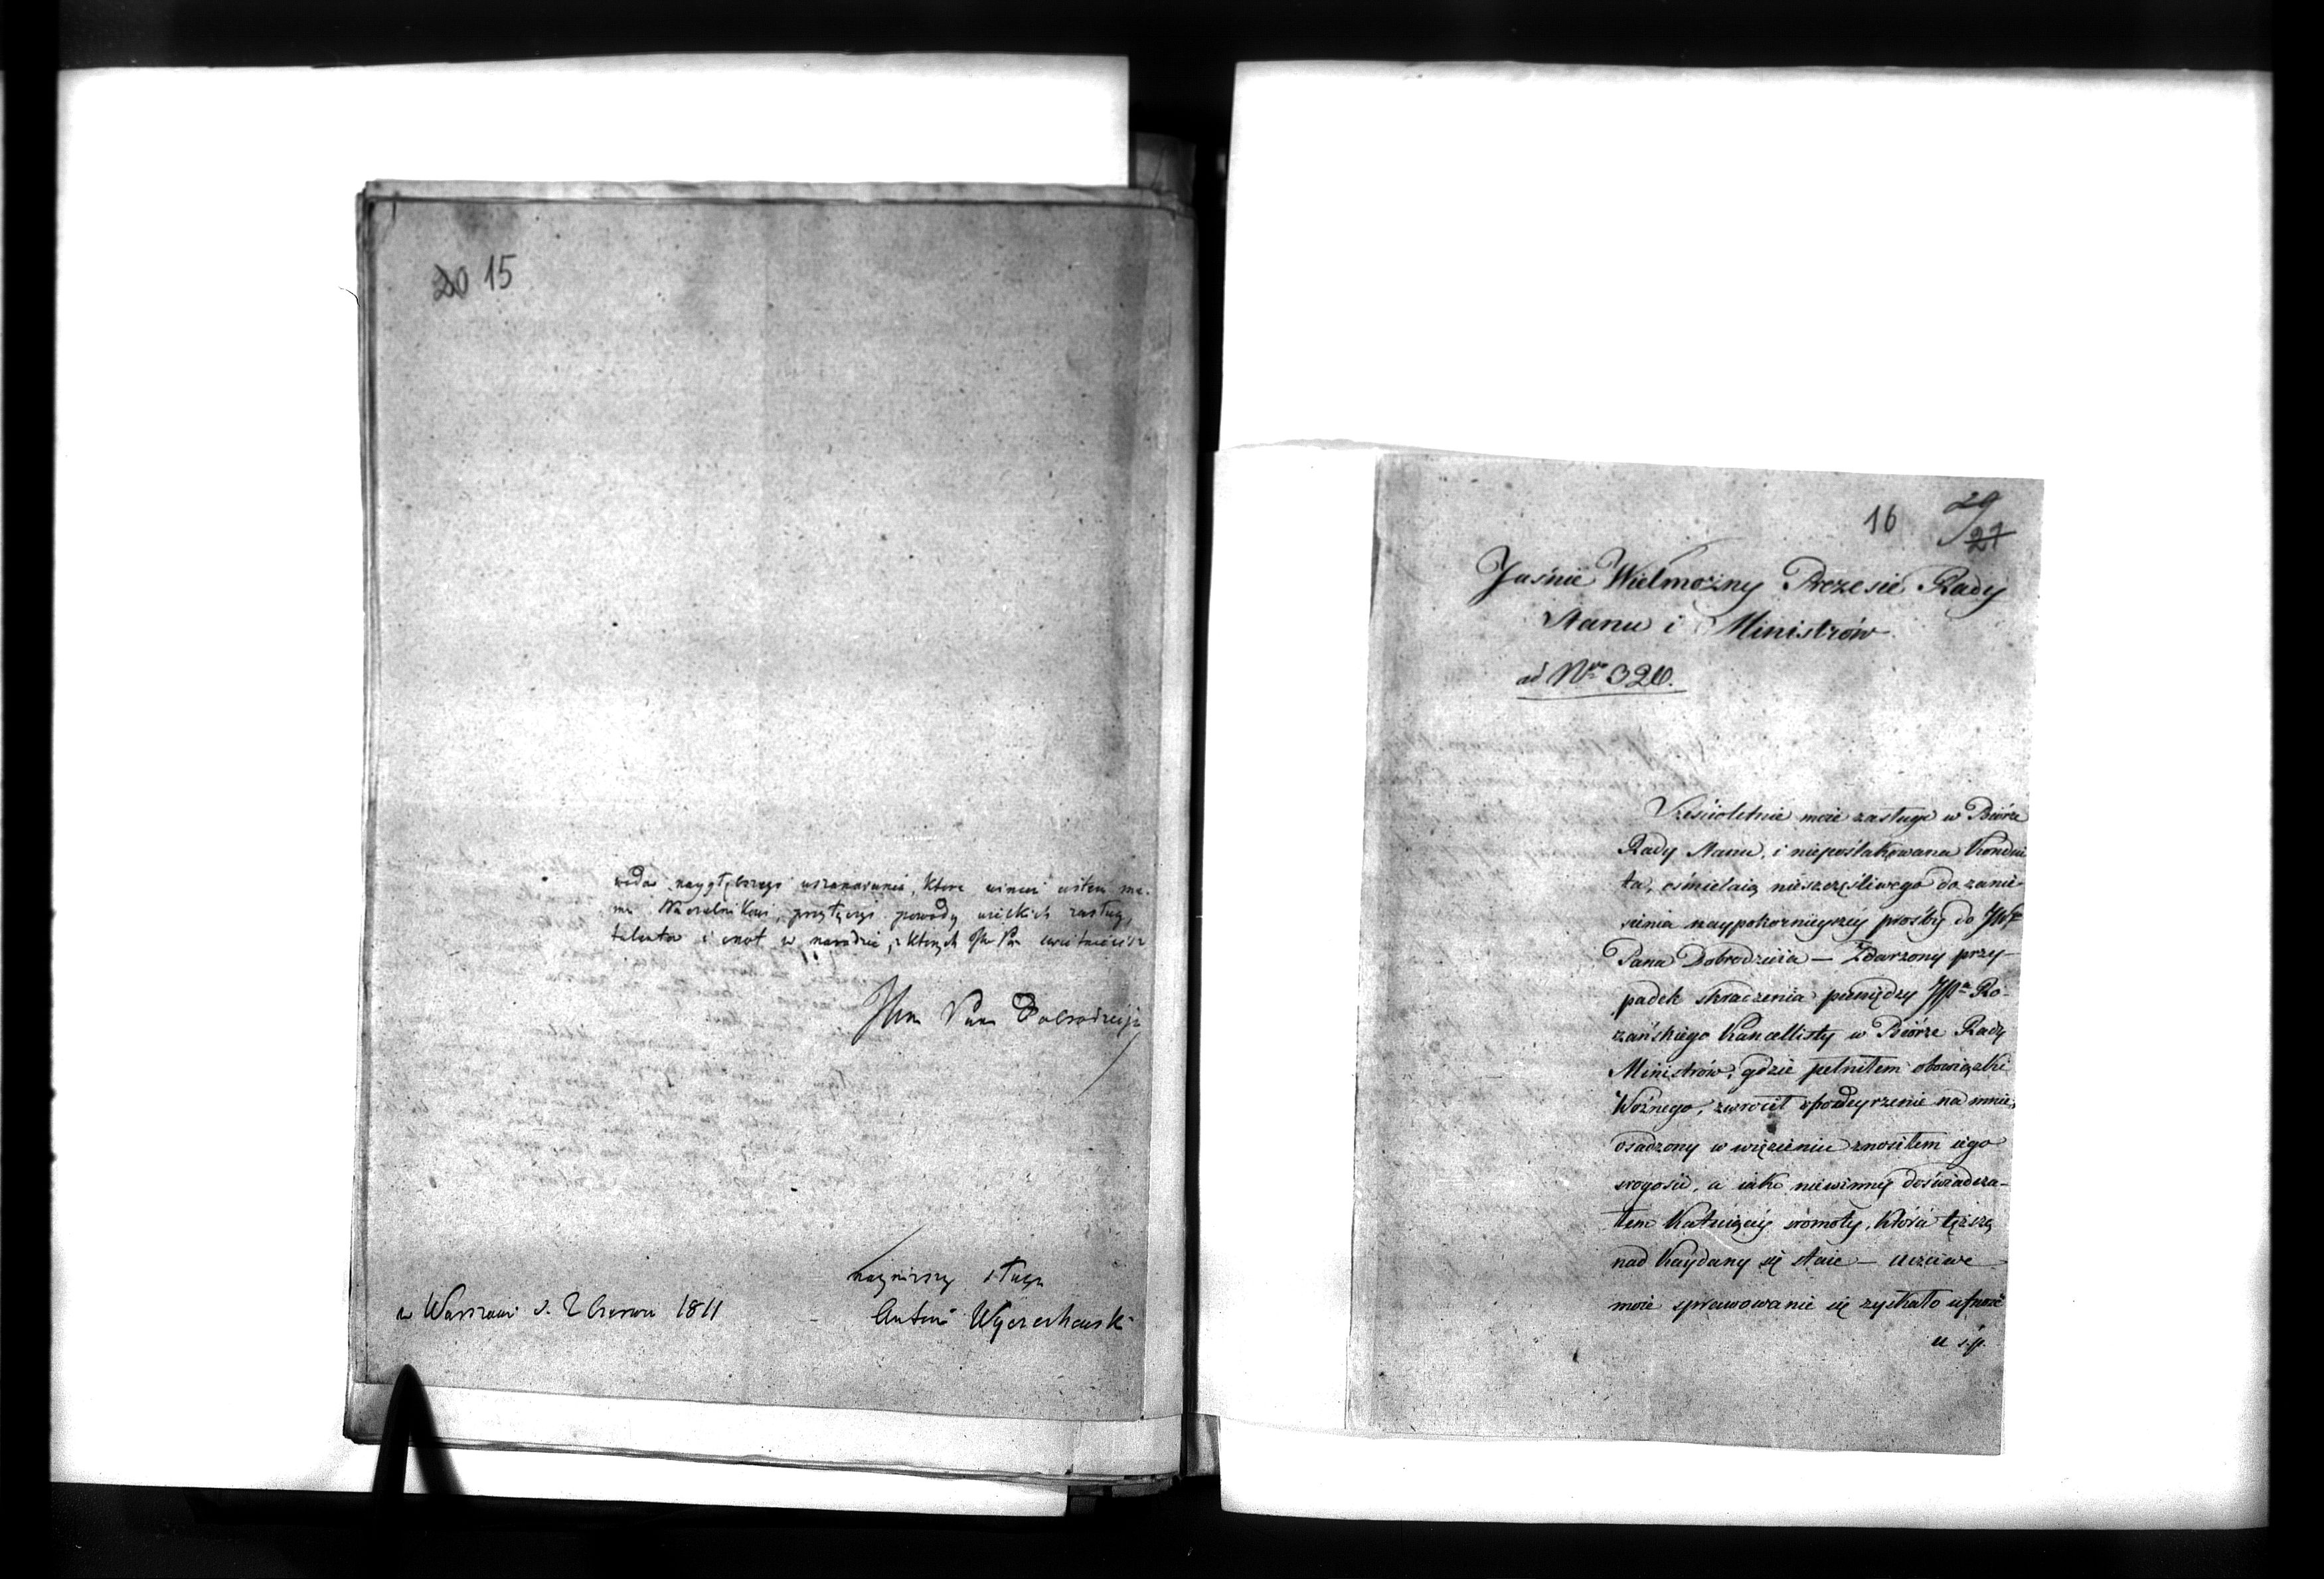 20 15
wodów naygłębszego uszanowania, które winien iestem me-
mu Naczelnikowi, przyłączyć powody wielkich zasług,
talentów i cnot w narodzie, z których JW Pan
JWm Pana Dobrodzieja
nayniższy sługa
w Warszawie d. 2 Czerwca 1811
Antoni Wyczechowski
16 29/27
Jaśnie Wielmożny Prezesie Rady
Stanu i Ministrów
ad Nro 320.
Sześcioletnie moie zasługi w Biórze
Rady Stanu, i nieposzlakowana kondui
ta, ośmielaią nieszczęśliwego do zanie-
sienia naypokornieyszéy prośby do JWgo
Pana Dobrodzieia — Zdarzony przy-
padek stracenia pieniędzy JPa Ro-
zańskiego Kancellisty w Biórze Rady
Ministrów, gdzie pełniłem obowiązki
Woźnego, zwrócił podeyrzenie na mnie,
osadzony w więzieniu znosiłem iego
srogość, a iako niewinny doświadcza-
łem katuiącéy sromoty, która tęższą
nad kaydany się staie — uczciwe
moie sprawowanie się zyskało ufność
u ś.p.